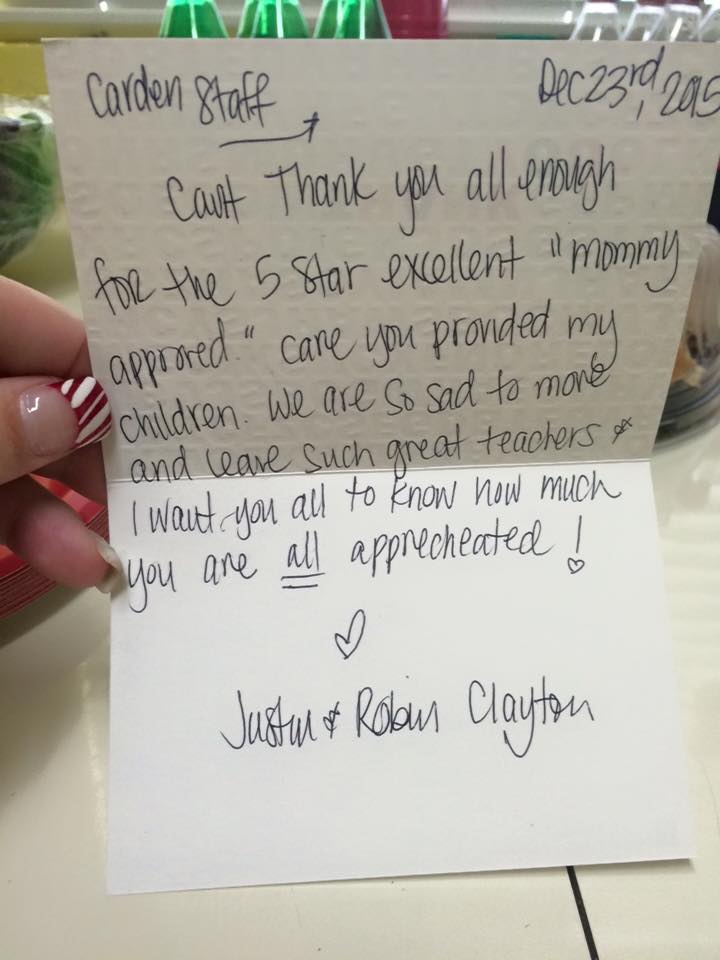 Carden Staff
Dec 23rd, 2015
Can't Thank you all enough
for the 5 Star excellent "mommy
approved." care you provided my
children. We are so sad to move
and leave such great teachers &
I want you all to know how much
you are all apprecheated!
♡
Justin & Robin Clayton